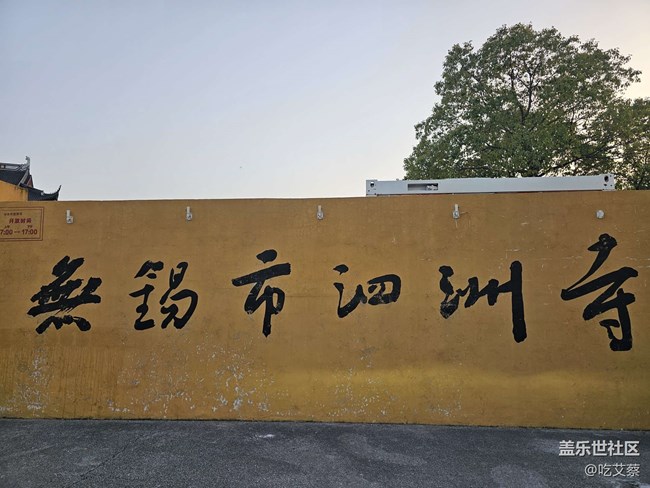 开放时间
7:00—17:00
無錫市泗洲寺
盖乐世社区
@吃艾蔡